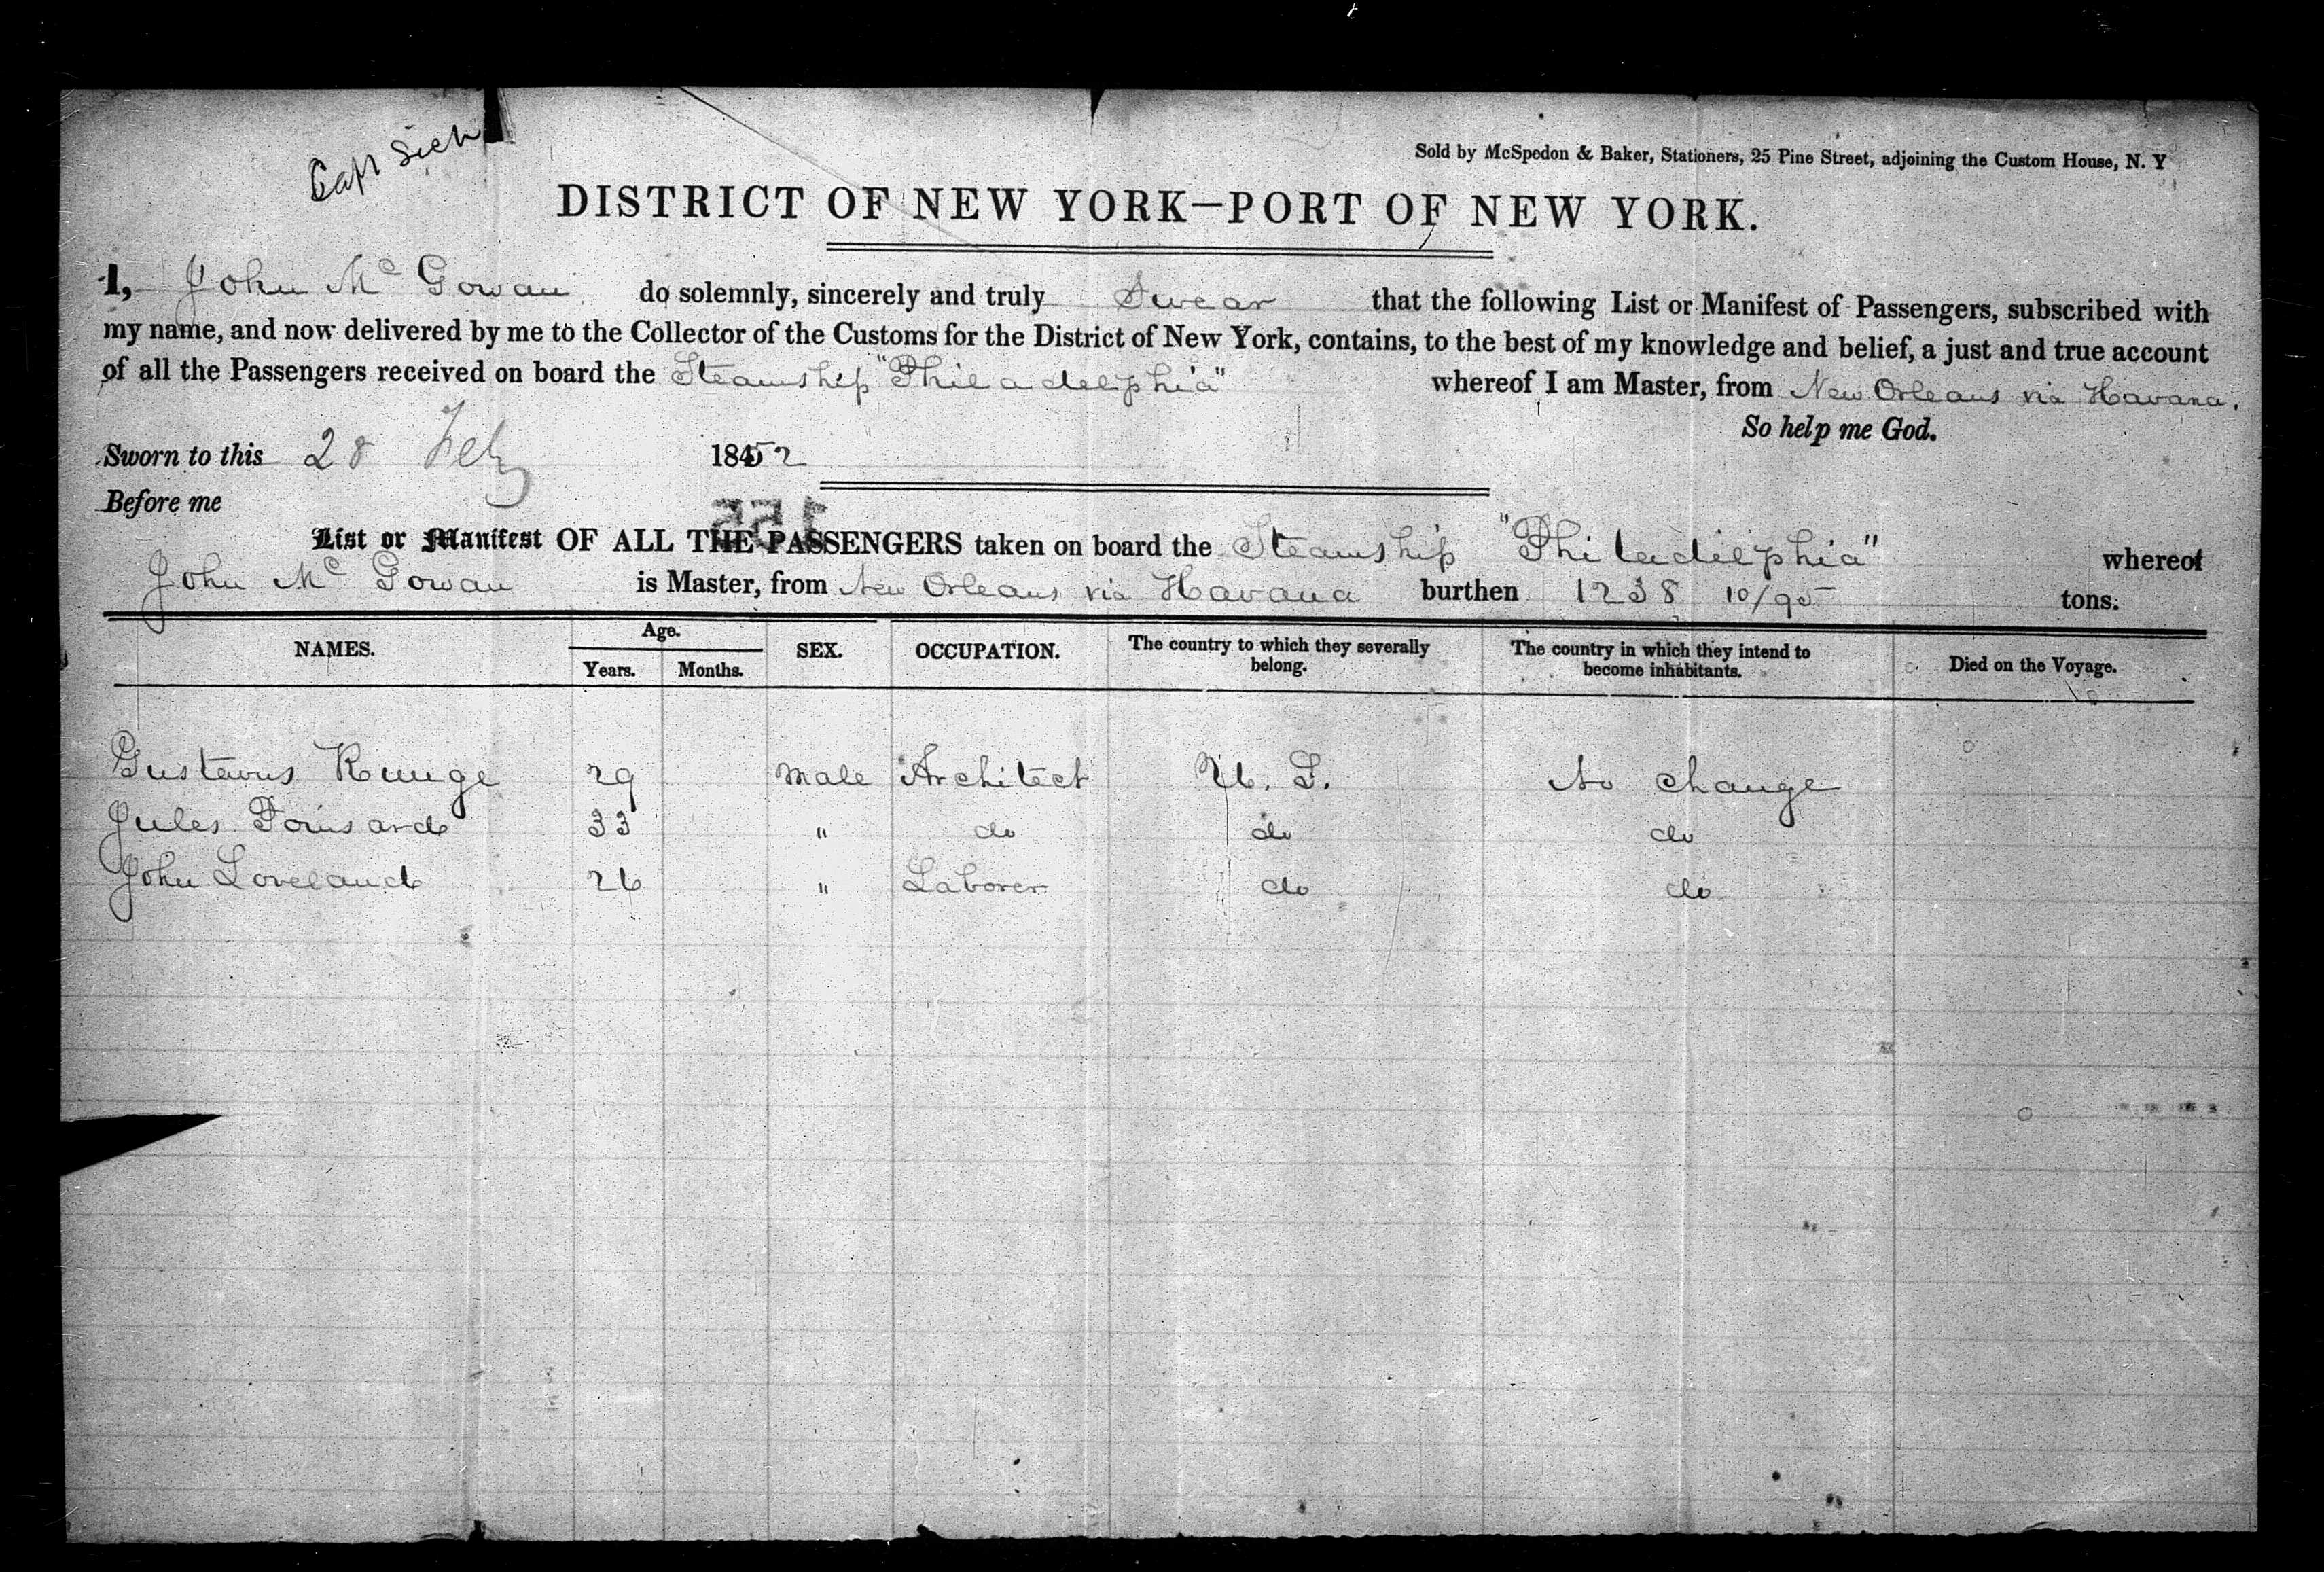 Capt Sick
Sold by McSpedon & Baker, Stationers, 25 Pine Street, adjoining the Custom House, N. Y
DISTRICT OF NEW YORK—PORT OF NEW YORK.
I, John Mc Gowan do solemnly, sincerely and truly Swear that the following List or Manifest of Passengers, subscribed with
my name, and now delivered by me to the Collector of the Customs for the District of New York, contains, to the best of my knowledge and belief, a just and true account
of all the Passengers received on board the Steamship "Philadelphia" whereof I am Master, from New Orleans via Havana.
So help me God.
Sworn to this 28 Feby 1852
Before me
155
List or Manifest OF ALL THE PASSENGERS taken on board the Steamship "Philadelphia" whereof
John Mc Gowan is Master, from New Orleans via Havana burthen 1238 10/95 tons.
NAMES. Age. Years. Months. SEX. OCCUPATION. The country to which they severally belong. The country in which they intend to become inhabitants. Died on the Voyage.
Gustavus Runge 29 Male Architect U. S. No change
Jules 33 " do do do
John Loveland 26 " Laborer do do